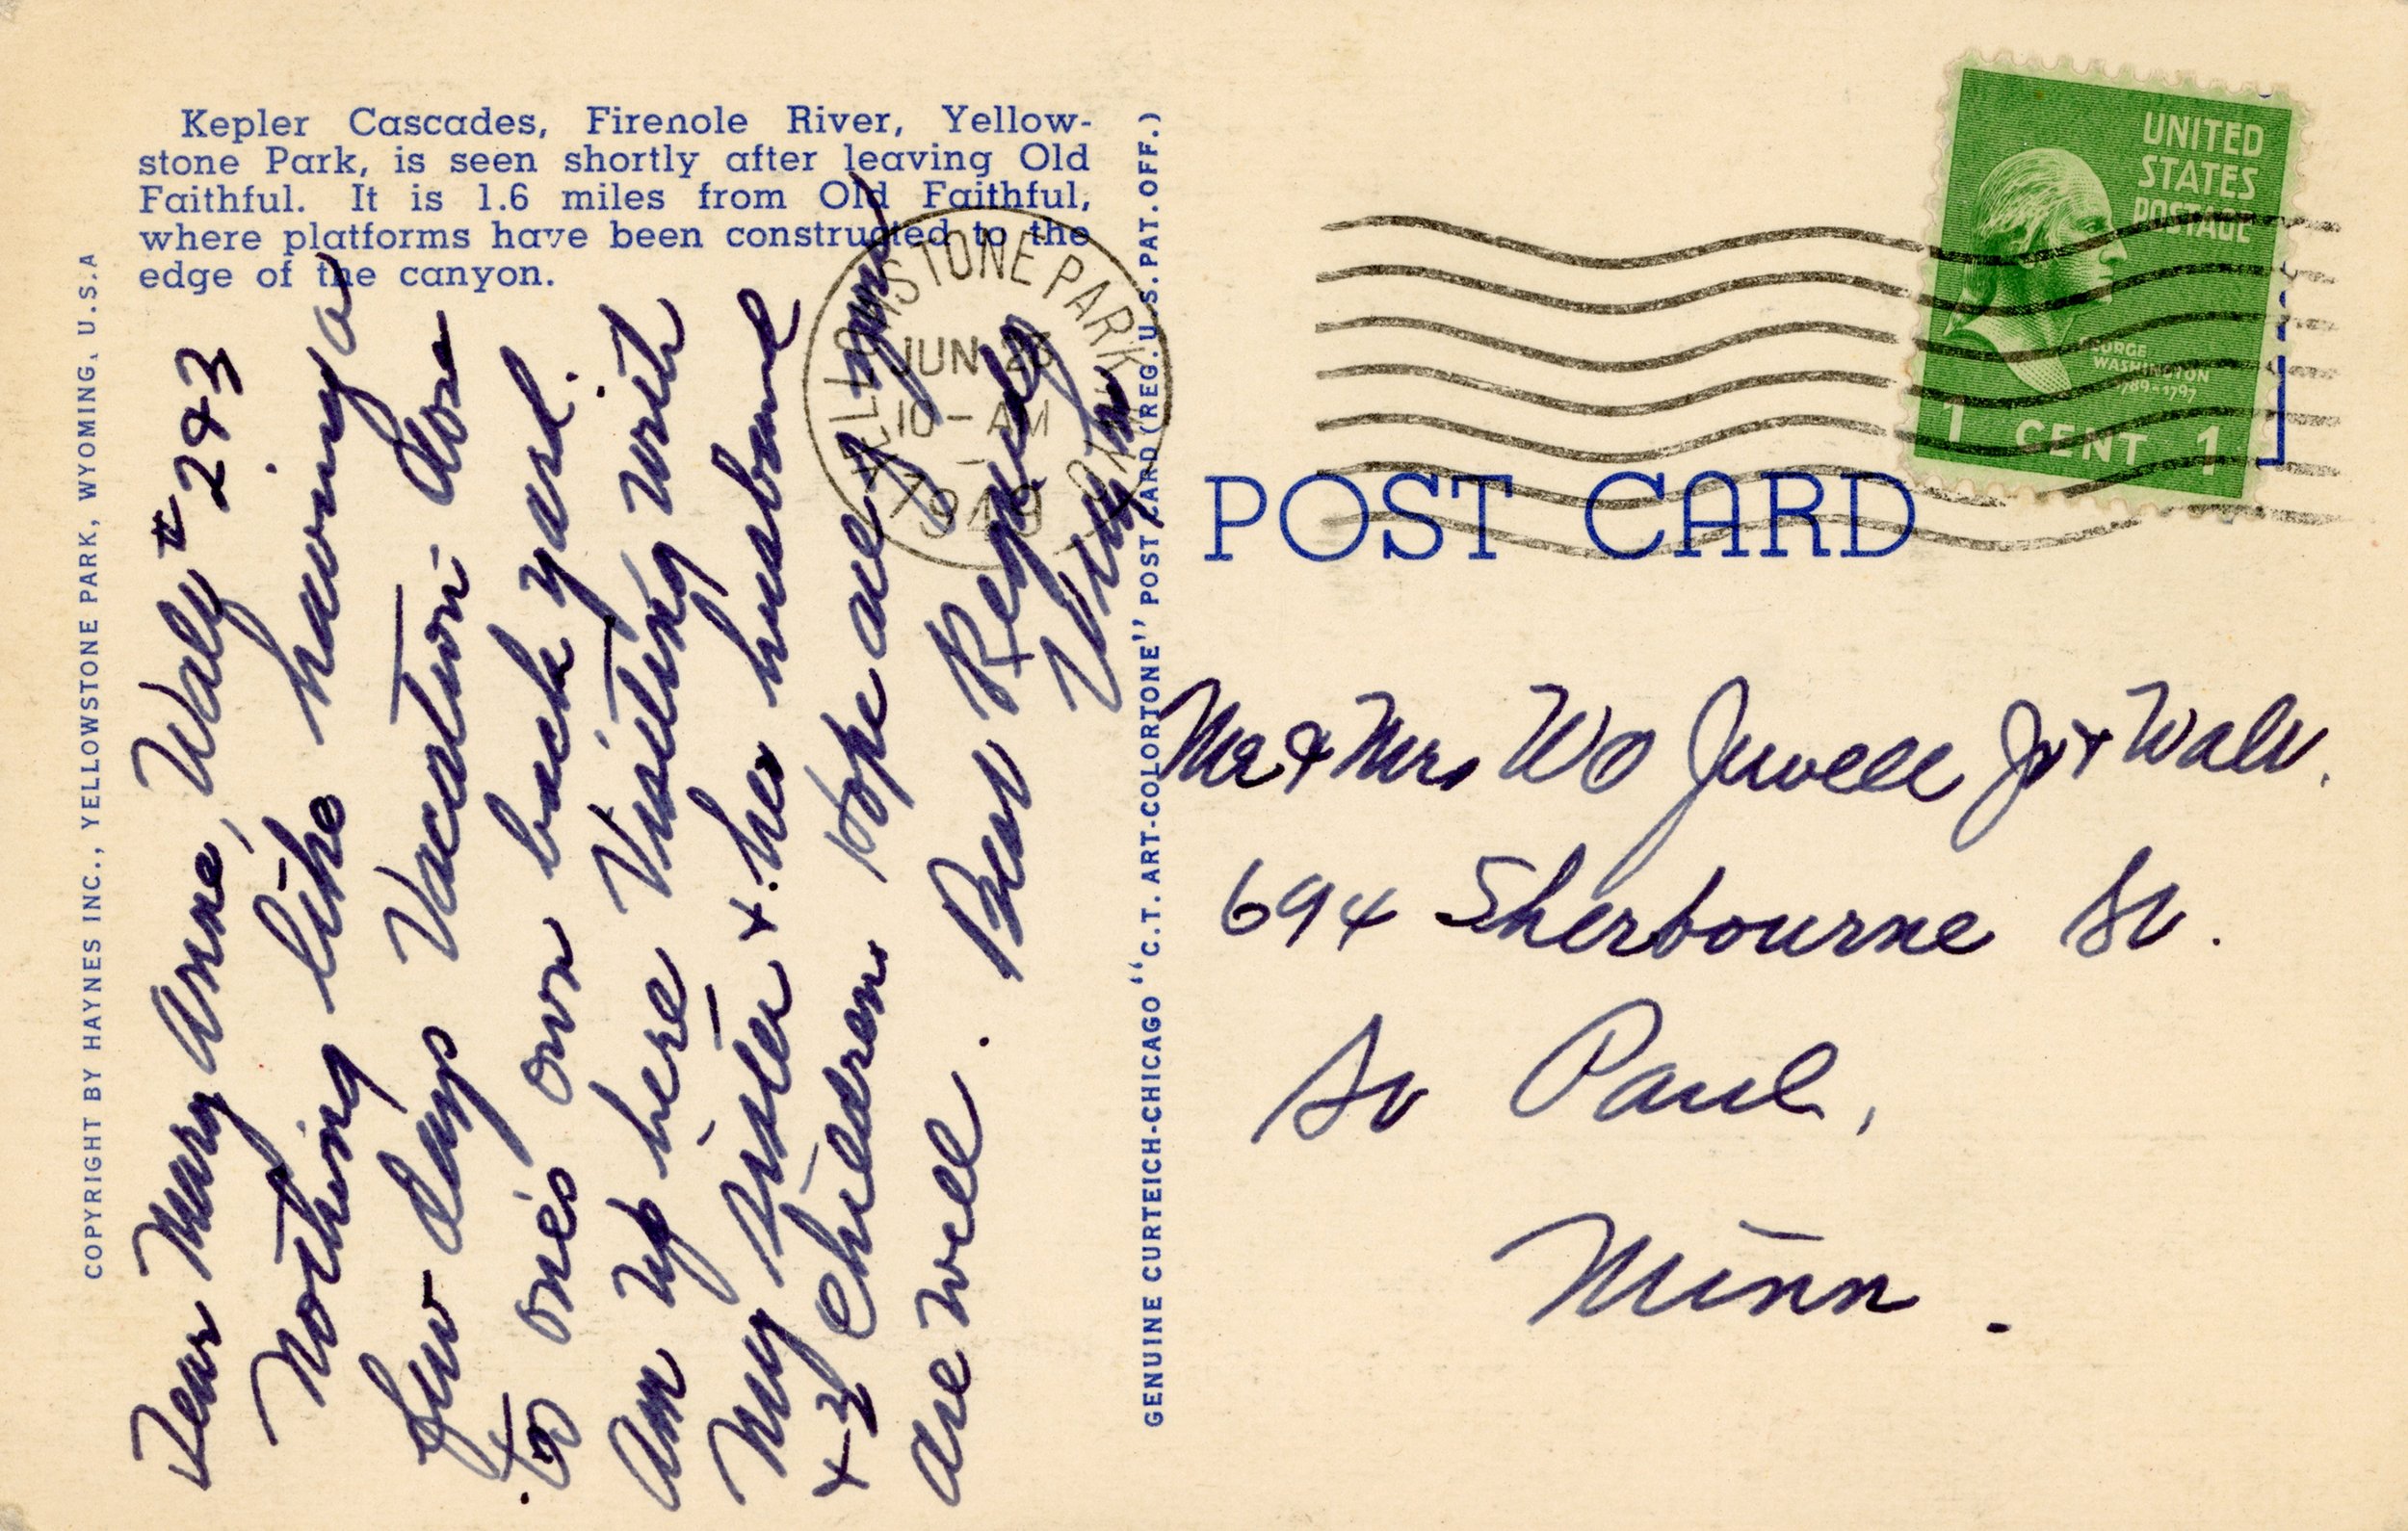 Kepler Cascades, Firenole River, Yellow-
stone Park, is seen shortly after leaving Old
Faithful. It is 1.6 miles from Old Faithful,
where platforms have been constructed to the
edge of the canyon.
COPYRIGHT BY HAYNES INC., YELLOWSTONE PARK, WYOMING, U.S.A
Dear Mary Anne, Waly # 2 + 3
Nothing like having a
few days Vacation close
to one's own back yard.
Am up here Visiting with
My Sister + her husband
+ 3 children Hope all of you
are well. Best Regards
YELLOWSTONE PARK
JUN 26
10 - AM
1949
GENUINE CURTEICH-CHICAGO "C.T. ART-COLORTONE" POST CARD (REG. U.S. PAT. OFF.)
UNITED
STATES
POSTAGE
GEORGE
WASHINGTON
1789-1797
1 CENT 1
POST CARD
Mr & Mrs WO Jewell Jr +
694 Sherbourne St.
St Paul,
Minn.